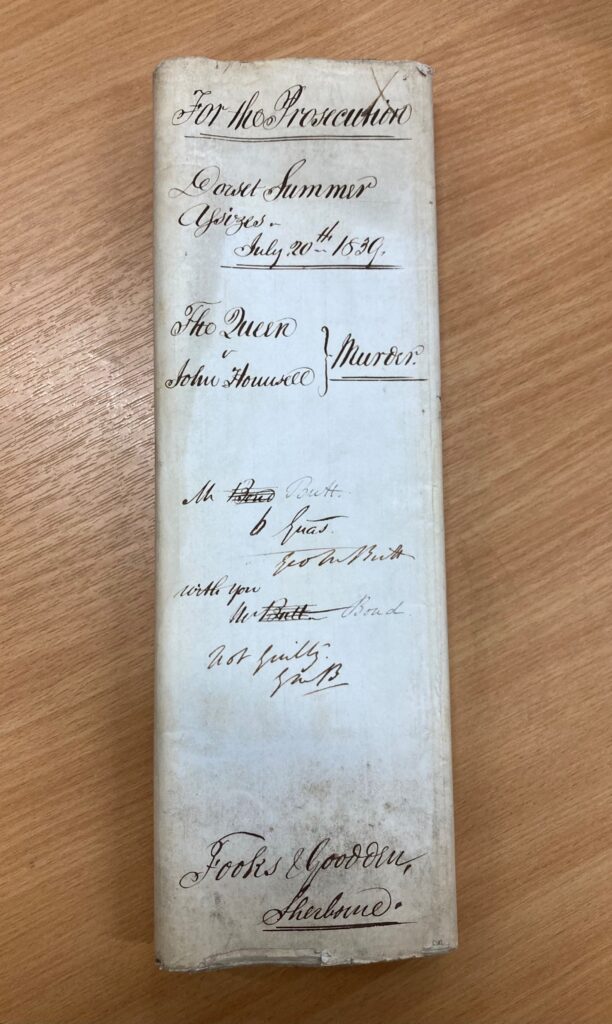 For the Prosecution
Dorset Summer
Assizes.
July 20th 1839.
The Queen
v
John Hounsell
} Murder.
Mr Bond Butt.
6 Guas.
Geo M Butt
with you
Mr Butt Bond
Not Guilty.
GMB
Fooks & Goodden,
Sherborne.